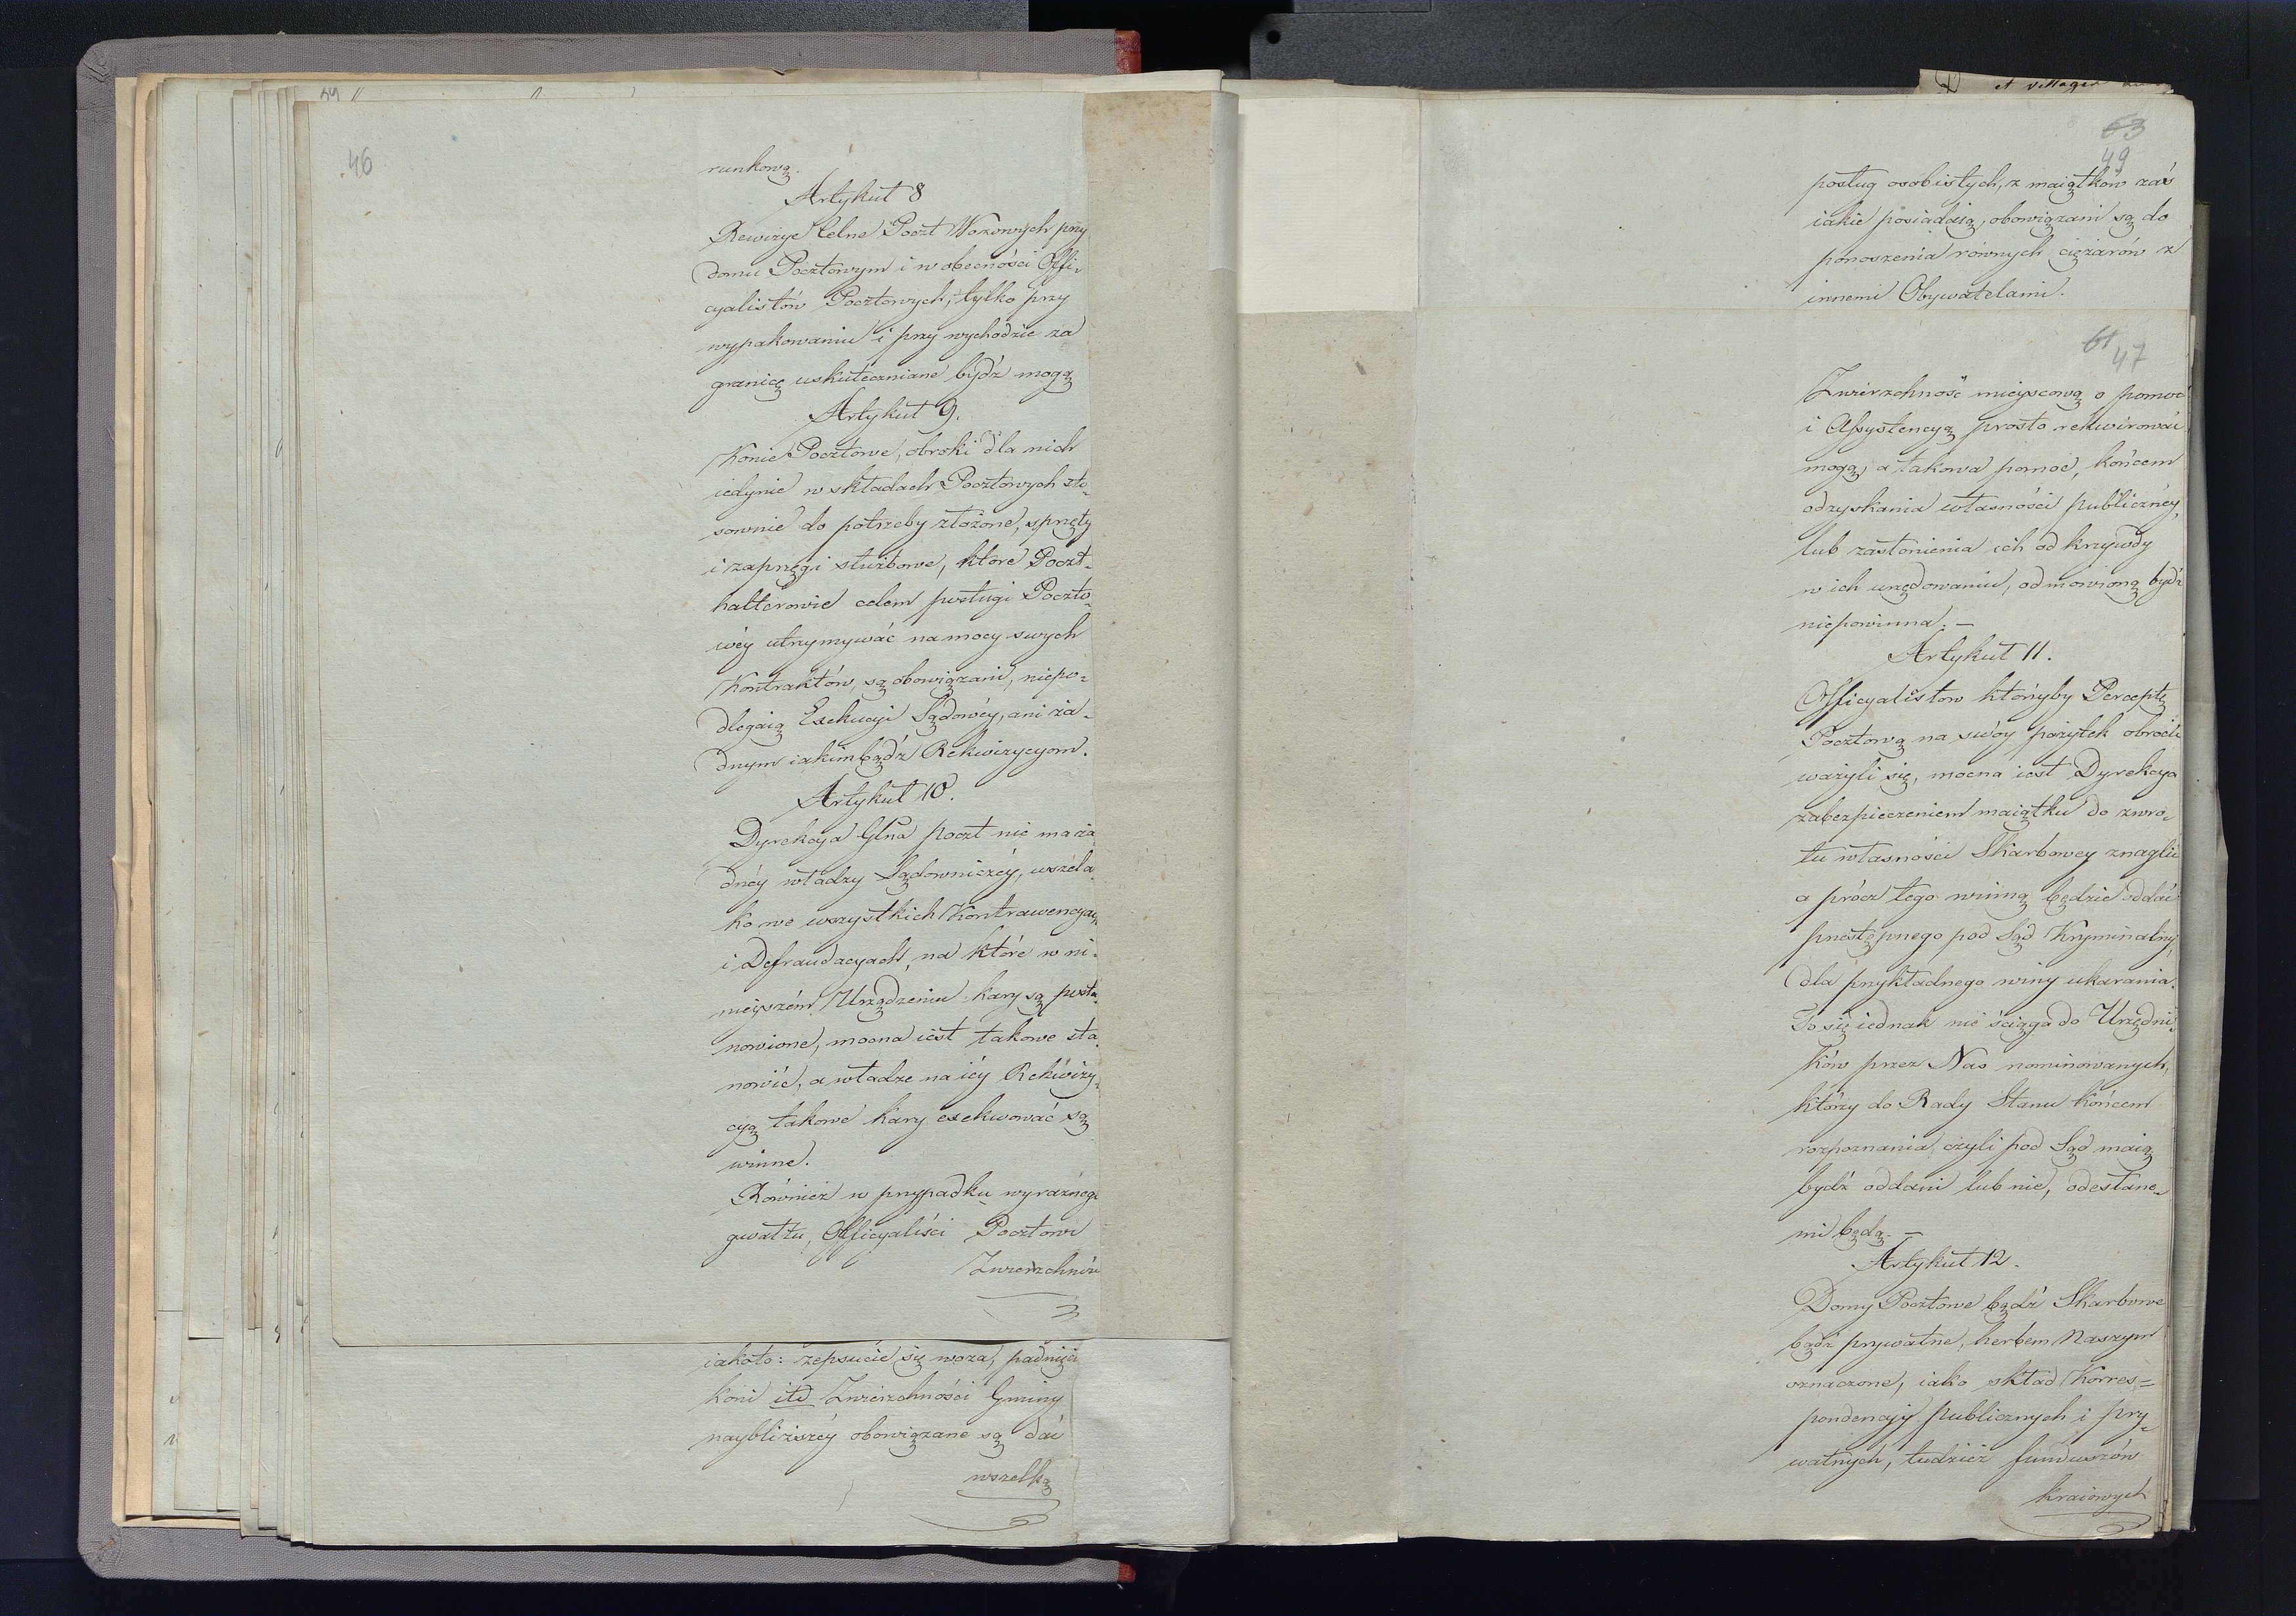 46
runkową.
Artykuł 8
Rewizye Celne Poczt Wozowych przy
domu Pocztowym i w obecności Offi-
cyalistów Pocztowych, tylko przy
wypakowaniu i przy wychodzie za
granicę uskuteczniane bydź mogą
Artykuł 9.
Konie Pocztowe, obroki dla nich
iedynie w składach Pocztowych sto-
sownie do potrzeby złożone, sprzęty
i zaprzęgi służbowe, które Poczt-
halterowie celem posługi Poczto-
wéy utrzymywać na mocy swych
Kontraktów, są obowiązani, niepo-
dlegaią Exekucyi Sądowéy, ani ża-
dnym iakimbądź Rekwizycyom.
Artykuł 10.
Dyrekcya Głna poczt nie ma ża
dnéy władzy Sądowniczéy, wszela
ko we wszystkich Kontrawencyach
i Defraudacyach, na które w ni-
nieyszém Urządzeniu kary są posta-
nowione, mocna iest takowe sta-
nowić, a władze na iéy Rekwizy-
cyą takowe kary exekwować są
winne.
Również w przypadku wyraźnego
gwałtu, Officyaliści Pocztowi
Zwierzchność
iakoto: zepsucie się woza, padnięcie
koni itd Zwierzchności Gminy
naybliższéy obowiązane są dać
wszelką
et villages
63
49
posług osobistych, z maiątków zaś
iakie posiadaią, obowiązani są do
ponoszenia równych ciężarów z
innemi Obywatelami.
61
47
Zwierzchność mieyscową o pomoc
i Assystencyą prosto rekwirować
mogą, a takowa pomoc, końcem
odzyskania własności publicznéy,
lub zasłonienia ich od krzywdy
w ich urzędowaniu, odmówioną bydź
niepowinna. —
Artykuł 11.
Officyalistów którzyby Perceptę
Pocztową na swóy pożytek obrócić
ważyli się, mocna iest Dyrekcya
zabezpieczeniem maiątku do zwro-
tu własności Skarbowey znaglić
a prócz tego winną będzie oddać
przestępnego pod Sąd Kryminalny,
dla przykładnego winy ukarania.
To się iednak nie ściąga do Urzędni-
ków przez Nas nominowanych,
którzy do Rady Stanu końcem
rozpoznania, czyli pod Sąd maią
bydź oddani lub nie, odesłane-
mi będą. —
Artykuł 12.
Domy Pocztowe bądź Skarbowe
bądź prywatne, herbem Naszym
oznaczone, iako skład Korres=
pondencyi publicznych i pry-
watnych, tudzież funduszów
kraiowych